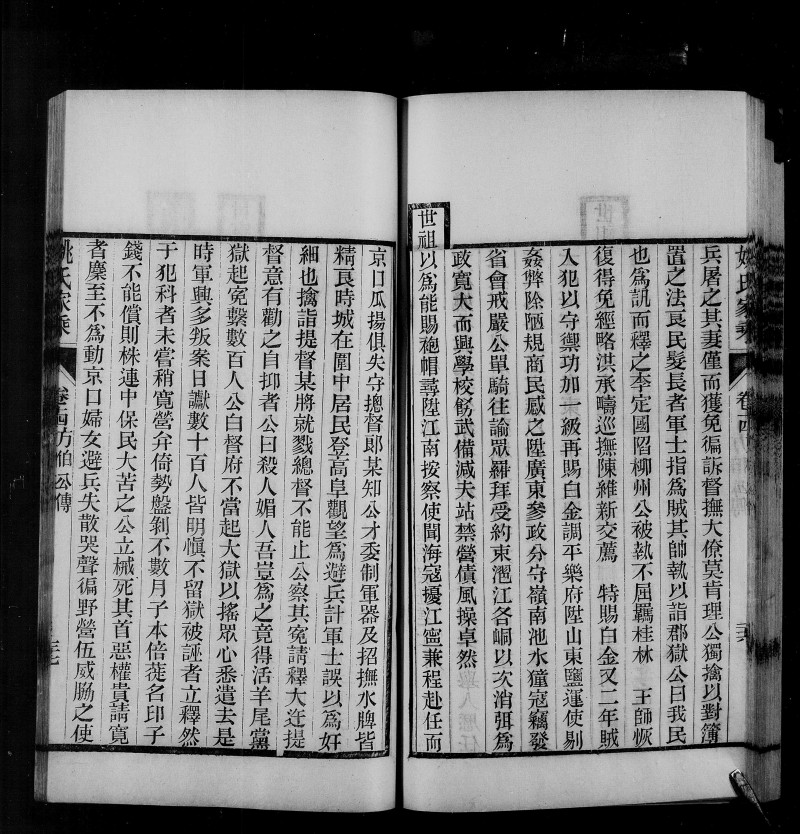 姚氏家乘
卷十四
兵屠之其妻僅而獲免徧訴督撫大僚莫肯理公獨擒以對簿
置之法良民髮長者軍士指為賊其帥執以詣郡獄公曰我民
也為訊而釋之李定國陷柳州公被執不屈羈桂林　王師恢
復得免經略洪承疇巡撫陳維新交薦　特賜白金又二年賊
入犯以守禦功加一級再賜白金調平樂府陞山東鹽運使剔
姦弊除陋規商民感之陞廣東參政分守嶺南池水獞寇竊發
省會戒嚴公單騎往諭眾羅拜受約束𣽂江各峒以次消弭為
政寬大而興學校飭武備減夫站禁營債風操卓然
世祖以為能賜袍帽尋陞江南按察使聞海寇擾江寧兼程赴任而
京口瓜揚俱失守摠督郎某知公才委制軍器及招撫水脾皆
精良時城在圍中居民登高阜觀望為避兵計軍士誤以為奸
細也擒詣提督某將就戮總督不能止公察其冤請釋大迕提
督意有勸之自抑者公曰殺人媚人吾豈為之竟得活羊尾黨
獄起冤繫數百人公白督府不當起大獄以搖眾心悉遣去是
時軍興多叛案日讞數十百人皆明慎不留獄被誣者立釋然
于犯科者未嘗稍寬營弁倚勢盤剝不數月子本倍蓰名印子
錢不能償則株連中保民大苦之公立械死其首惡權貴請寬
者麇至不為動京口婦女避兵失散哭聲徧野營伍威脇之使
姚氏家乘
卷十四方伯公傳